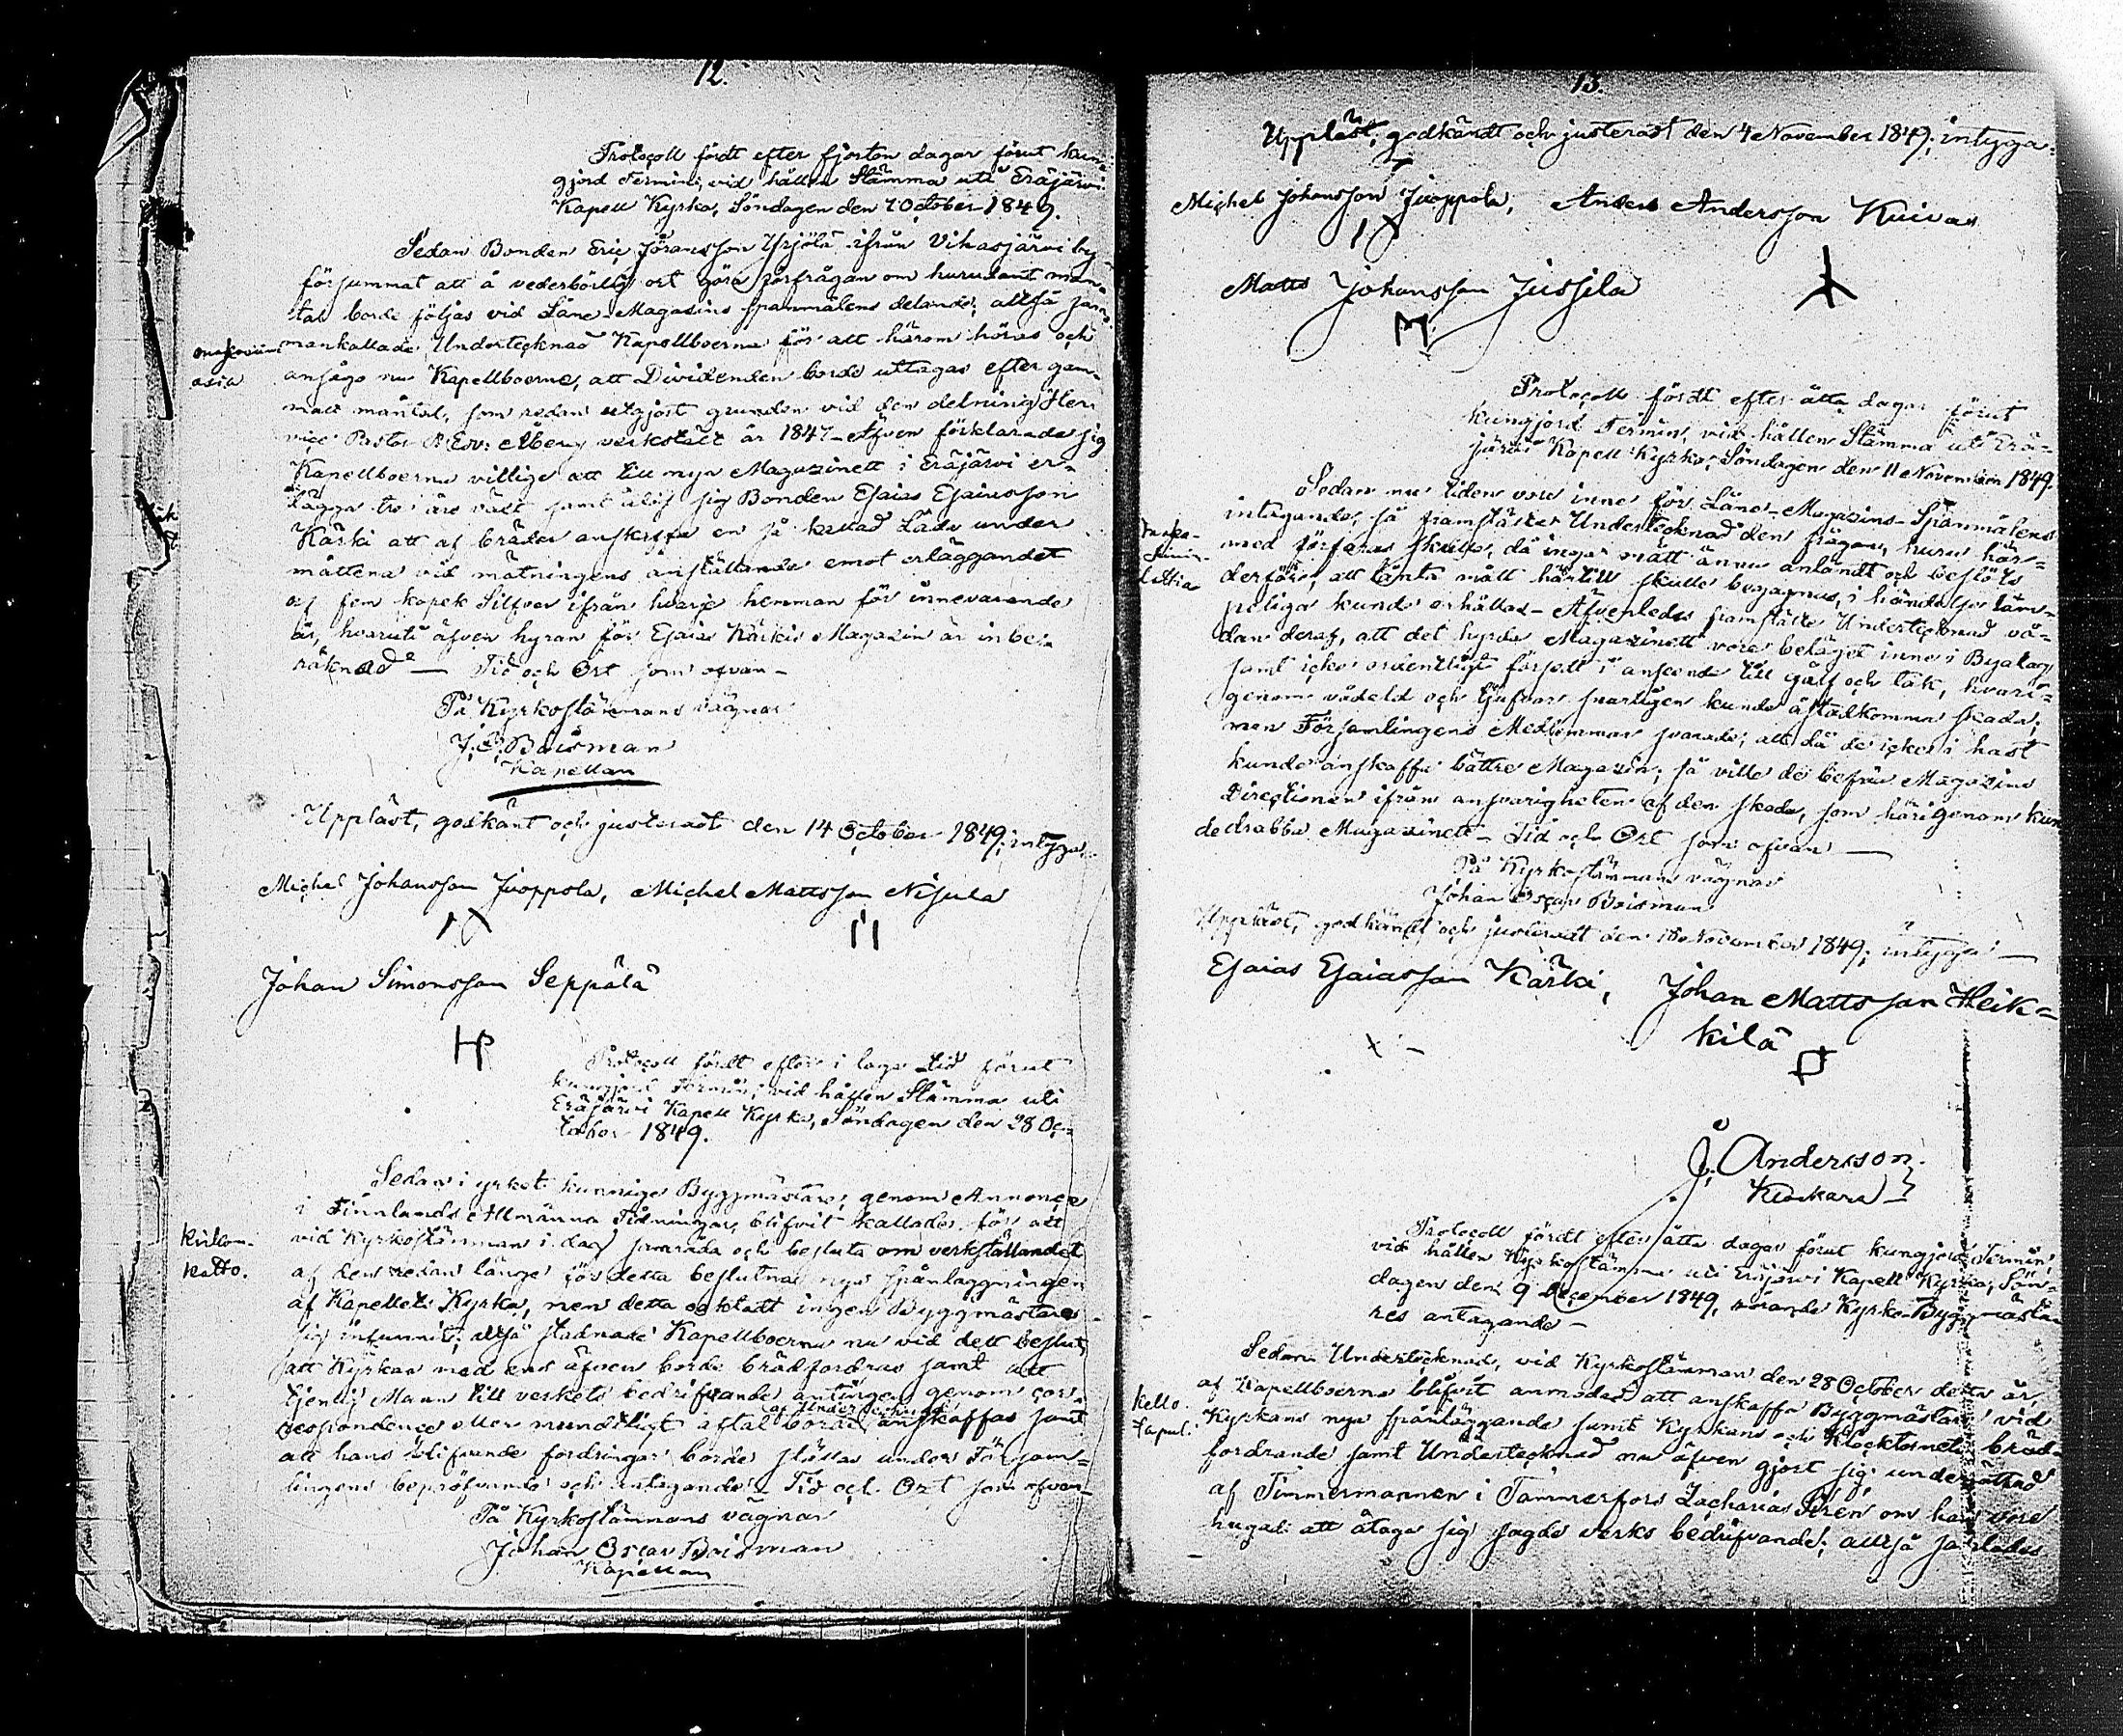 12.
Protocoll fördt efter fjorton dagar förut kun-
gjord Termin, vid hållen Stämma uti Eräjärvi
Kapell Kyrka, Söndagen den 7 October 1849.
Sedan Bonden Eric Jöransson Yrjölä ifrån Vihasjärvi by
försummat att å vederbörlig ort göra förfrågan om hurudant man-
tal borde följas vid Låne-Magasins spannmålens delande; alltså sam-
mankallade Undertecknad Kapellboerne för att härom höras och
magasiini
asia
ansågo nu Kapellboerne, att Dividenden borde uttagas efter gam-
malt mantal, som redan utgjort grunden vid den delning Herr
vice Pastor Åberg verkstält år 1847 - Äfven förklarade sig
Kapellboerne villige att till nya Magazinett i Eräjärvi er-
lägga tre års växt samt åtog sig Bonden Esaias Esaiasson
Kärki att af bräder anskaffa en så kallad Låda under
måttena vid mätningens anställande emot erläggandet
af fem kopek Silfver ifrån hvarje hemman för innevarande
år, hvaruti äfven hyran för Esaias Kärkis Magasin är inbe-
räknad - Tid och Ort som ofvan -
På Kyrkostämmans vägnar
J. O. Boisman
Kapellan
Uppläst, godkänt och justeradt den 14 October 1849; intyga
Michel Johansson Juoppola, Michel Mattsson Nisula
Johan Simonsson Seppälä
Protocoll fördt efter i laga tid förut
kungjord Termin, vid hållen Stämma uti
Eräjärvi Kapell Kyrka, Söndagen den 28 Oc-
tober 1849.
Sedan i yrket kunnige Byggmästare, genom Annonce
i Finnlands Allmänna Tidningar, blifvit kallade för att
vid Kyrkostämman i dag samråda och besluta om verkställandet
Kirkon-
katto.
af den redan länge för detta beslutna nya spånläggningen
af Kapellets Kyrka, men detta oaktadt ingen Byggmästare
sig infunnit; alltså stadnade Kapellboerne nu vid dett beslut,
att Kyrkan med ens äfven borde brädfordras samt att
tjenlig Mann till verkets bedrifvande antingen genom cor-
respondence eller mundtligt aftal borde af Undertecknad anskaffas samt
att hans blifvande fordringar borde ställas under Försam-
lingens bepröfvande och antagande - Tid och Ort som ofvan -
På Kyrkostämmans vägnar
Johan Oscar Boisman
Kapellan
13.
Uppläst, godkändt och justeradt den 4 November 1849; intyga
Michel Johansson Juoppola, Anders Andersson Kuivas
Matts Johansson Jussila
Protocoll fördt efter åtta dagar förut
kungjord Termin, vid hållen Stämma uti Erä-
järvi Kapell Kyrka, Söndagen den 11 November 1849.
Sedan nu tiden vore inne för Låne-Magasins-Spannmålens
intagande, så framstälte Undertecknad den frågan, huru här-
med förfaras skulle, då ingen mått ännu anländt och beslöts
derföre, att lånta mått härtill skulle begagnas, i händelse läm-
peliga kunde erhållas - Äfvenledes framstälte Undertecknad vå-
dan deraf, att det hyrda Magazinett vore beläget inne i Byalag
samt icke ordentligt försedt i anseende till golf och tak, hvari-
genom vådeld och tjufvar snarligen kunde åstadkomma skada;
men Församlingens Medlemmar svarade, att då de icke i hast
kunde anskaffa bättre Magazin, så ville de befria Magazins
Directionen ifrån ansvarigheten af den skada, som härigenom kun-
de drabba Magazinett - Tid och Ort som ofvan -
På Kyrkostämmans vägnar
Johan Oscar Boisman
Uppläst, godkändt och justeradt den 18 November 1849; intyga
Esaias Esaiasson Kärki, Johan Mattsson Heik-
kilä
J. Andersson
Klockare
Protocoll fördt efter åtta dagar förut kungjord Termin,
vid hållen Kyrkostämma uti Eräjärvi Kapell Kyrka, Sön-
dagen den 9 December 1849, rörande Kyrko-Byggmästa-
res antagande -
Sedan Undertecknad, vid Kyrkostämman den 28 October detta år,
af Kapellboerne blifvit anmodad att anskaffa Byggmästare vid
Kello-
tapuli.
Kyrkans nya spånläggande samt Kyrkans och Klocktornets bräd-
fordrande samt Undertecknad nu äfven gjort sig underrättad
af Timmermannen i Tammerfors Zacharias Siren om han vore
hugad att åtaga sig sagde verks bedrifvande; alltså